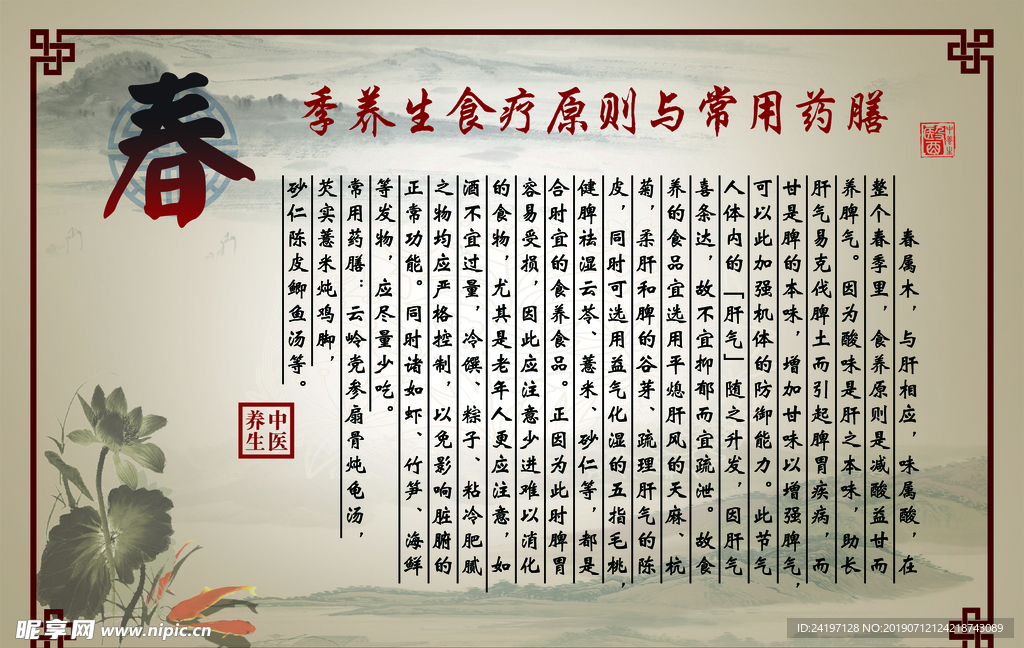 春
季养生食疗原则与常用药膳
春属木，与肝相应，味属酸，在
整个春季里，食养原则是减酸益甘而
养脾气。因为酸味是肝之本味，助长
肝气易克伐脾土而引起脾胃疾病，而
甘是脾的本味，增加甘味以增强脾气，
可以此加强机体的防御能力。此节气
人体内的「肝气」随之升发，因肝气
喜条达，故不宜抑郁而宜疏泄。故食
养的食品宜选用平熄肝风的天麻、杭
菊，柔肝和脾的谷芽、疏理肝气的陈
皮，同时可选用益气化湿的五指毛桃，
健脾祛湿云苓、薏米、砂仁等，都是
合时宜的食养食品。正因为此时脾胃
容易受损，因此应注意少进难以消化
的食物，尤其是老年人更应注意，如
酒不宜过量，冷馔、粽子、粘冷肥腻
之物均应严格控制，以免影响脏腑的
正常功能。同时诸如虾、竹笋、海鲜
等发物，应尽量少吃。
常用药膳：云岭党参扇骨炖龟汤，
芡实薏米炖鸡脚，
砂仁陈皮鲫鱼汤等。
中医
养生
昵享网 www.nipic.cn
ID:24197128 NO:20190712124218743089